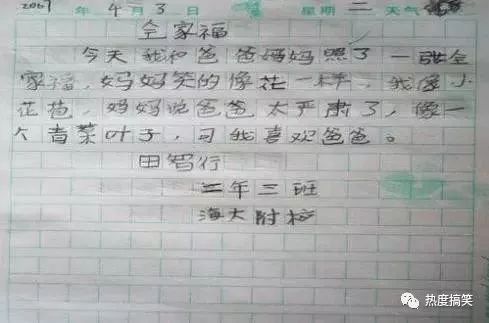 2007年4月3日 星期二 天气
全家福
今天我和爸爸妈妈照了一张全
家福，妈妈笑的像花一样，我像小
花苞，妈妈说爸爸太严肃了，像一
个青菜叶子，可我喜欢爸爸。
田智行
二年三班
海大附校
热度搞笑